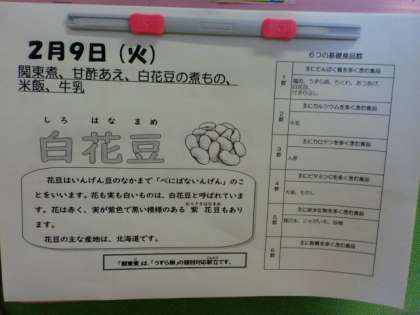 2月9日（火）
関東煮、甘酢あえ、白花豆の煮もの、
米飯、牛乳
しろ はな まめ
白花豆
花豆はいんげん豆のなかまで「べにばないんげん」のこ
とをいいます。花も実も白いものは、白花豆と呼ばれていま
す。花は赤く、実が紫色で黒い模様のある 紫 花豆もあり
ます。
花豆の主な産地は、北海道です。
「関東煮」は、「うずら卵」の個別対応献立です。
６つの基礎食品群
1群
主にたんぱく質を多く含む食品
2群
主にカルシウムを多く含む食品
牛乳
3群
主にカロテンを多く含む食品
人参
4群
主にビタミンCを多く含む食品
5群
主に炭水化物を多く含む食品
6
主に脂質を多く含む食品